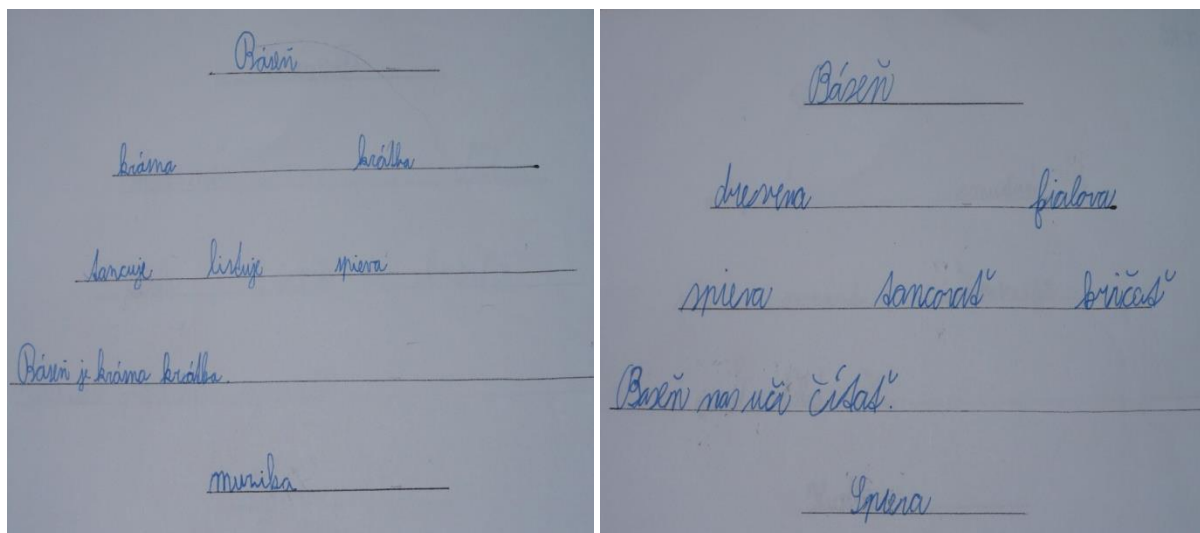 Báseň
krásna krátka
tancuje listuje spieva
Báseň je krásna krátka.
muzika
Báseň
drevena fialova
spieva tancovať kričať
Baseň nas uči čítať.
Spieva